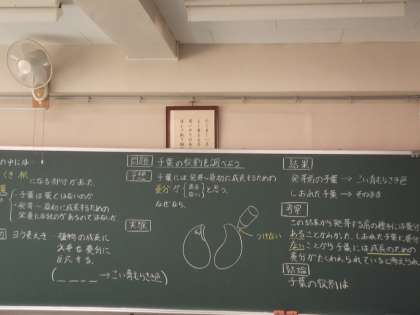 の中には…
になる部分があった
・子葉は葉とはないのか
・発芽〜最初に成長するための
栄養になるのがあるのではないか
ヨウ素えき…植物の成長に
必要な養分に
反応する。
(＿＿＿＿→こい青むらさき色)
問題 子葉の役割を調べよう
予想 子葉には発芽〜最初に成長するための
養分が{ある ない}と思う。
なぜなら、
実験
つけない
結果
発芽前の子葉 → こい青むらさき色
しおれた子葉 → そのまま
考察
この結果から発芽する前の種子には養分が
あることがわかった。しおれた子葉に養分が
ないことから子葉には成長のための
養分がたくわえられていると考えられ
結論
子葉の役割は